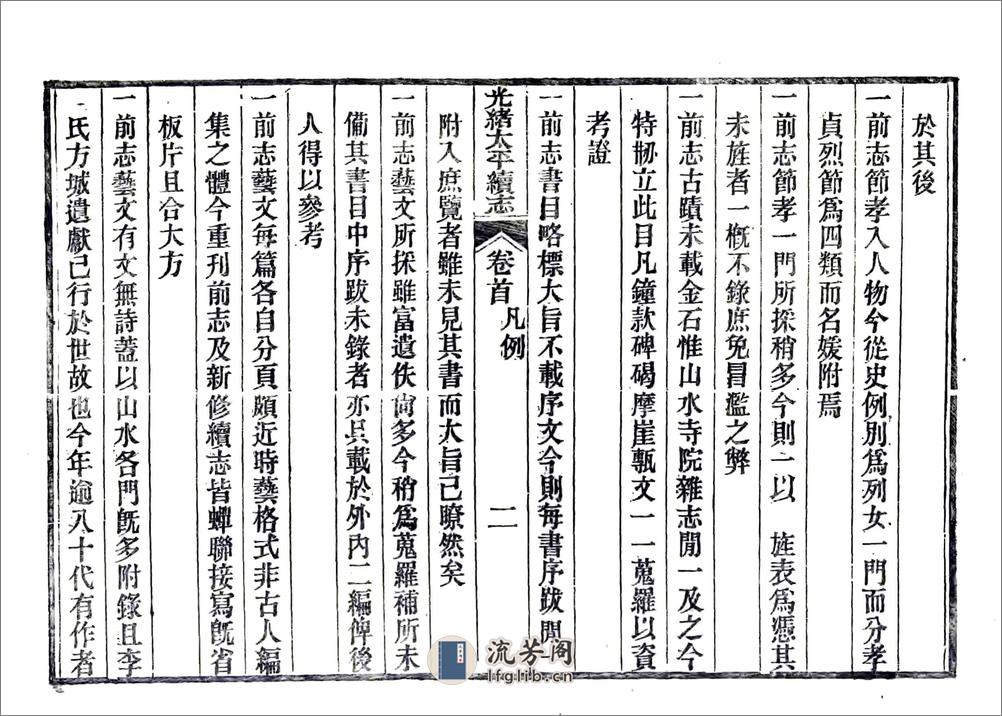 於其後
一前志節孝入人物今從史例別爲列女一門而分孝
貞烈節爲四類而名媛附焉
一前志節孝一門所採稍多今則一以 旌表爲憑其
未旌者一槪不錄庶免冒濫之弊
一前志古蹟未載金石惟山水寺院雜志閒一及之今
特刱立此目凡鐘款碑碣摩崖甎文一一蒐羅以資
考證
一前志書目略標大旨不載序文今則每書序跋閒
光緒太平續志 卷首 凡例 二
附入庶覽者雖未見其書而大旨已瞭然矣
一前志藝文所採雖富遺佚尙多今稍爲蒐羅補所未
備其書目中序跋未錄者亦具載於外內二編俾後
人得以參考
一前志藝文每篇各自分頁頗近時藝格式非古人編
集之體今重刊前志及新修續志皆蟬聯接寫旣省
板片且合大方
一前志藝文有文無詩蓋以山水各門旣多附錄且李
氏方城遺獻已行於世故也今年逾八十代有作者
流芳阁
lfglib.cn